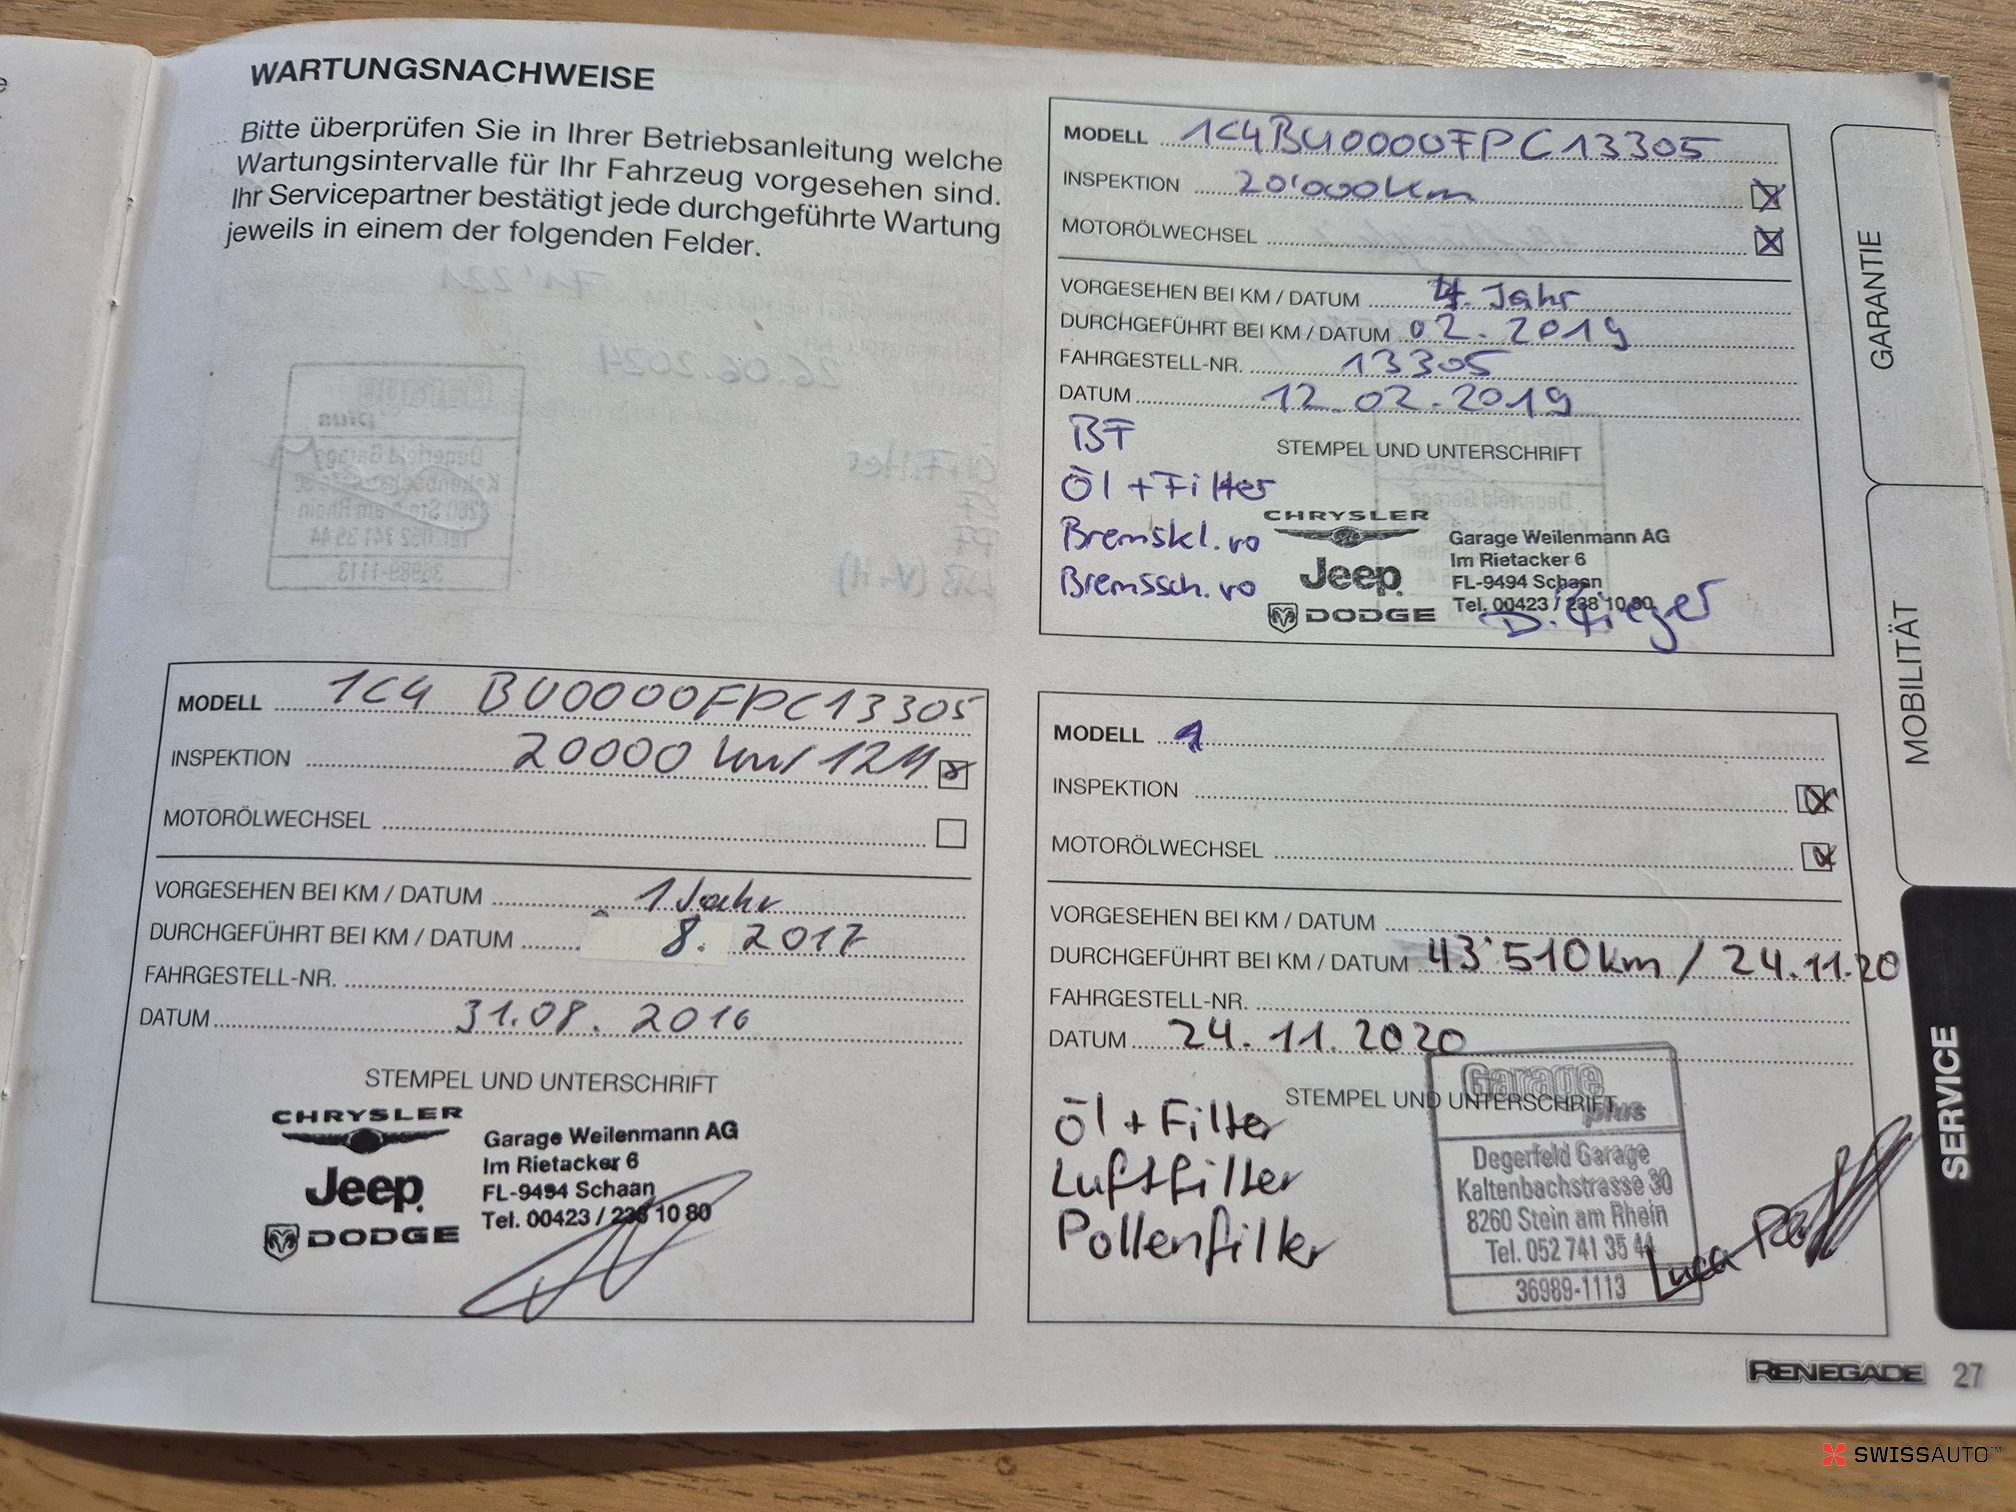 WARTUNGSNACHWEISE
Bitte überprüfen Sie in Ihrer Betriebsanleitung welche
Wartungsintervalle für Ihr Fahrzeug vorgesehen sind.
Ihr Servicepartner bestätigt jede durchgeführte Wartung
jeweils in einem der folgenden Felder.
MODELL 1C4 BU0000FPC13305
INSPEKTION 20000 km/12M
MOTORÖLWECHSEL
VORGESEHEN BEI KM / DATUM 1 Jahr
DURCHGEFÜHRT BEI KM / DATUM 8. 2017
FAHRGESTELL-NR.
DATUM 31.08. 2016
STEMPEL UND UNTERSCHRIFT
CHRYSLER
Jeep
DODGE
Garage Weilenmann AG
Im Rietacker 6
FL-9494 Schaan
Tel. 00423 / 238 10 80
MODELL 1C4BU0000FPC13305
INSPEKTION 20'000km
MOTORÖLWECHSEL
VORGESEHEN BEI KM / DATUM 4. Jahr
DURCHGEFÜHRT BEI KM / DATUM 02.2019
FAHRGESTELL-NR. 13305
DATUM 12.02.2019
STEMPEL UND UNTERSCHRIFT
BF
Öl + Filter
Bremskl. vo
Bremssch. vo
CHRYSLER
Jeep
DODGE
Garage Weilenmann AG
Im Rietacker 6
FL-9494 Schaan
Tel. 00423 / 238 10 80
MODELL
INSPEKTION
MOTORÖLWECHSEL
VORGESEHEN BEI KM / DATUM
DURCHGEFÜHRT BEI KM / DATUM 43'510km / 24.11.20
FAHRGESTELL-NR.
DATUM 24.11.2020
STEMPEL UND UNTERSCHRIFT
Öl + Filter
Luftfilter
Pollenfilter
Garage
plus
Degerfeld Garage
Kaltenbachstrasse 30
8260 Stein am Rhein
Tel. 052 741 35 44
36989-1113
Luca
GARANTIE
MOBILITÄT
SERVICE
RENEGADE 27
SWISSAUTO™